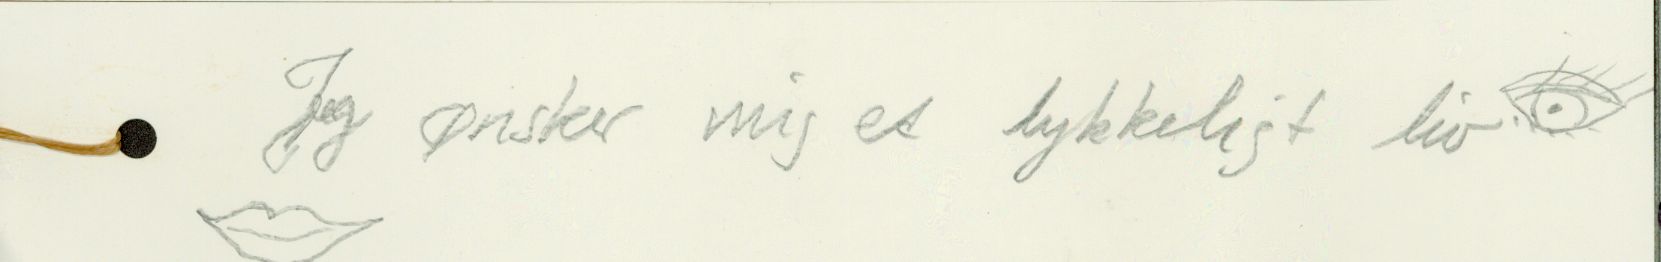 Jeg ønsker mig et lykkeligt liv.